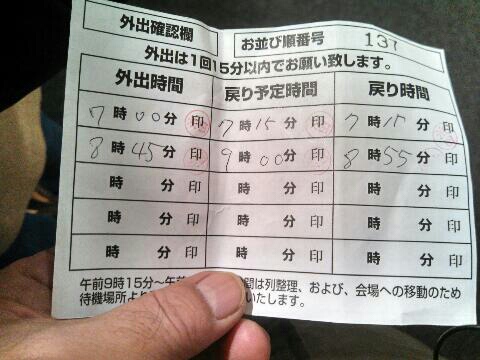 外出確認欄 お並び順番号 137
外出は1回15分以内でお願い致します。
外出時間 戻り予定時間 戻り時間
7時00分 印 7時15分 印 7時15分 印
8時45分 印 9時00分 印 8時55分 印
時 分 印 時 分 印 時 分 印
時 分 印 時 分 印 時 分 印
時 分 印 時 分 印 時 分 印
午前9時15分〜午 間は列整理、および、会場への移動のため
待機場所よ いたします。